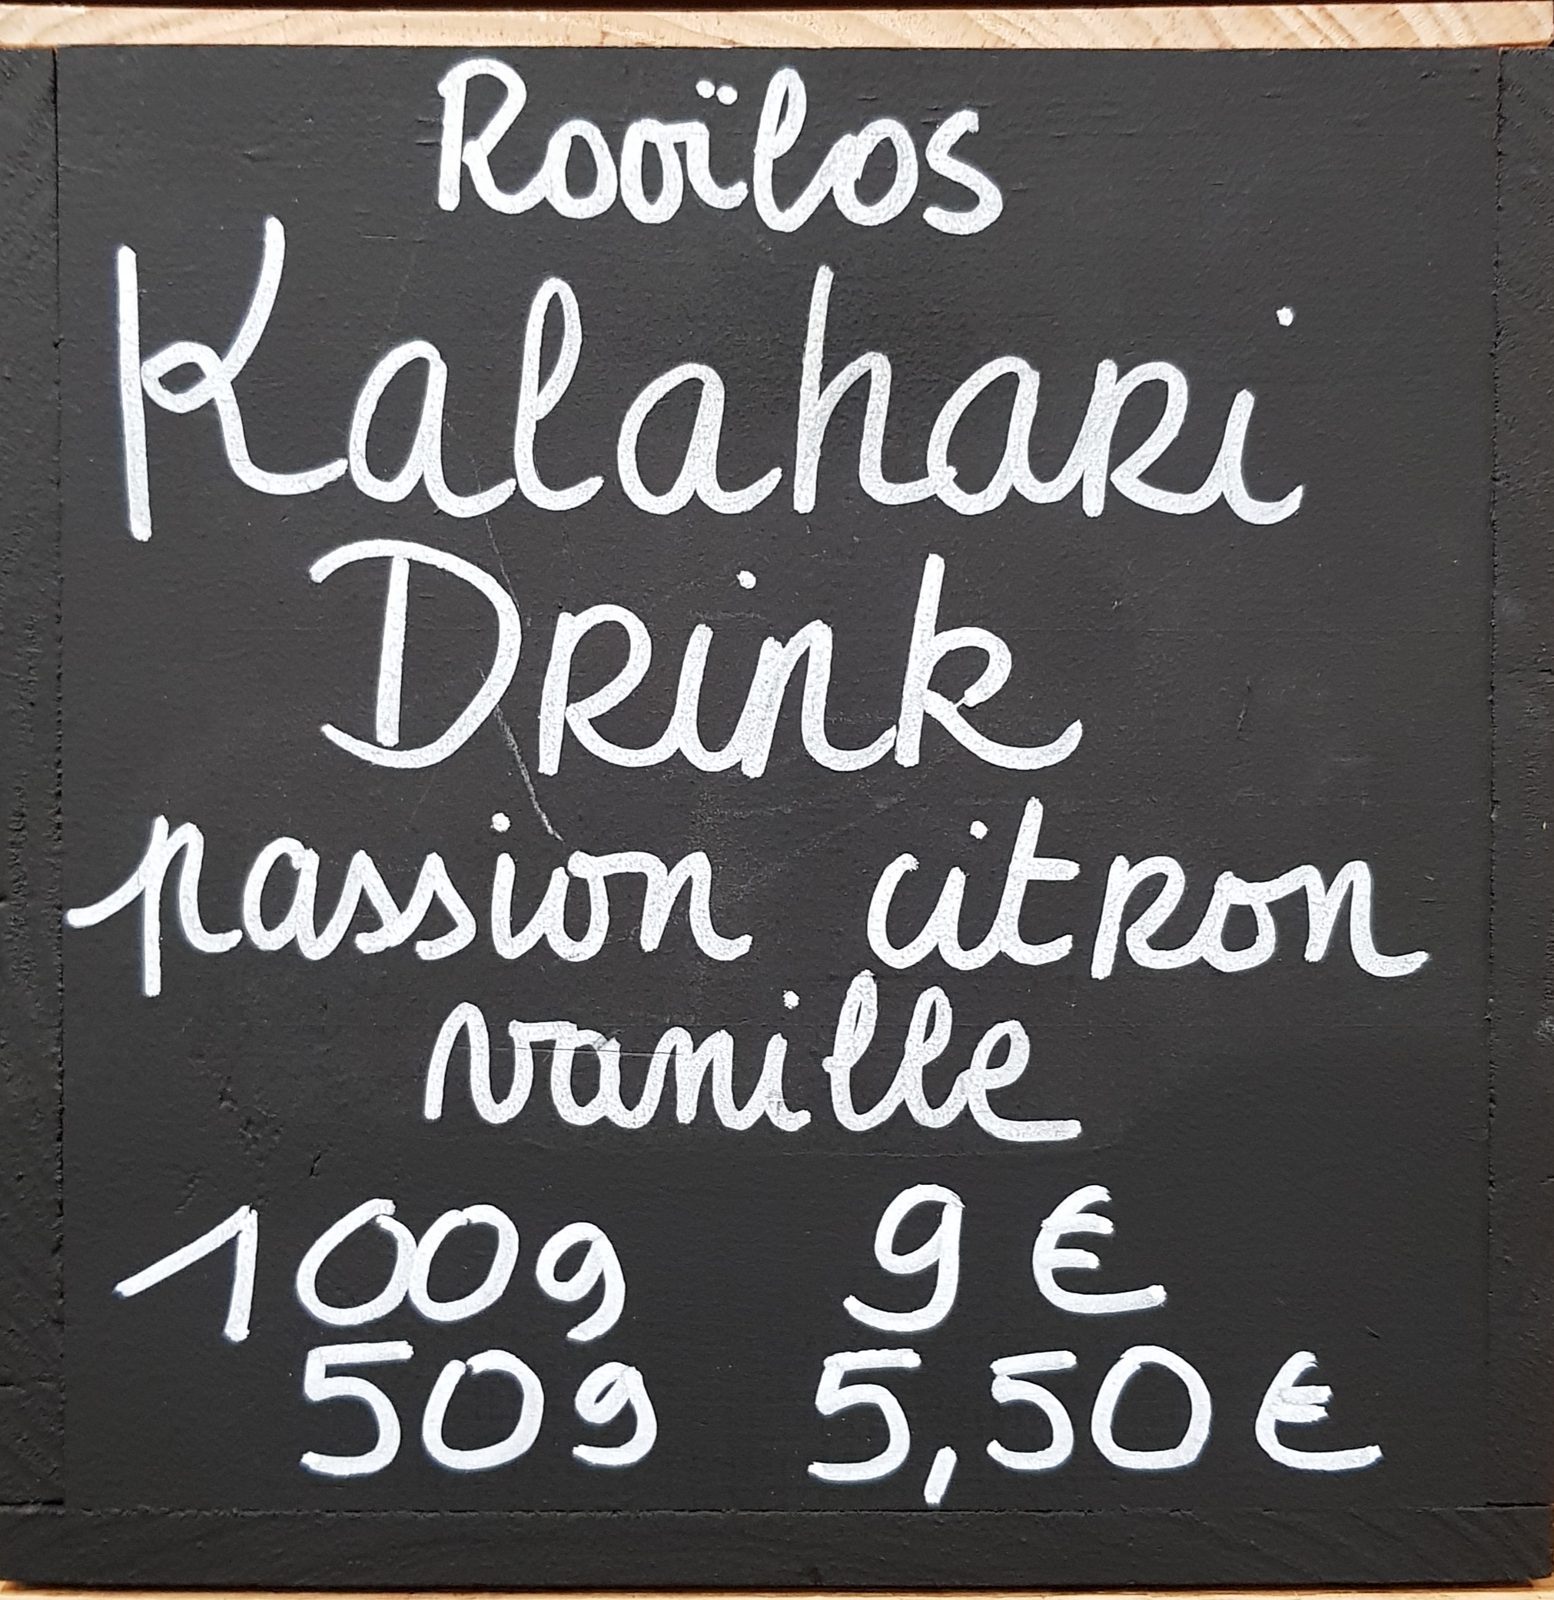 Rooïbos
Kalahari
Drink
passion citron
vanille
100g 9 €
50g 5,50 €